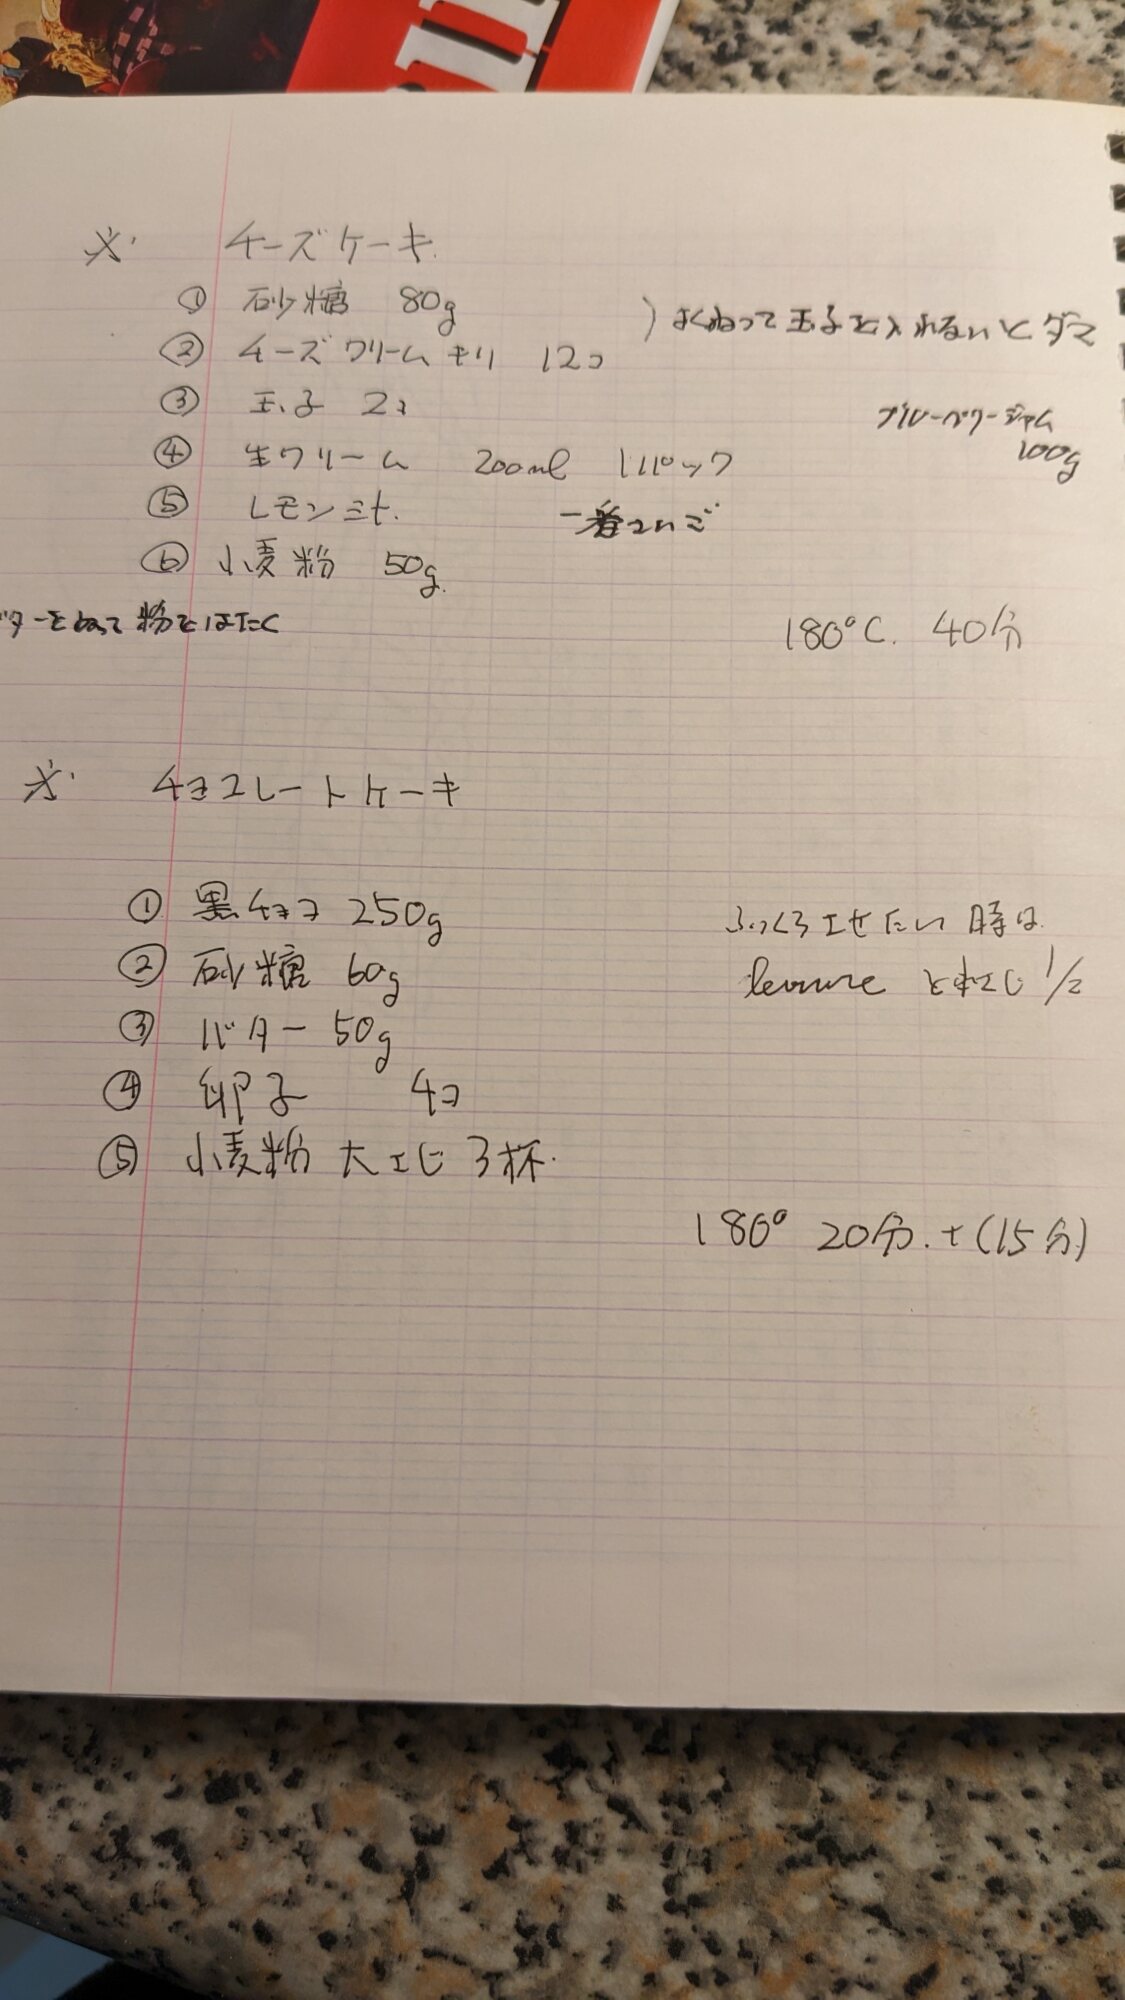 ※ チーズケーキ
① 砂糖 80g
② チーズクリーム キリ 12コ
)よくねって玉子を入れないとダマ
③ 玉子 2コ
ブルーベリージャム
100g
④ 生クリーム 200ml 1パック
⑤ レモン汁.
一番さいご
⑥ 小麦粉 50g.
ターをぬって粉をはたく
180℃. 40分
※ チョコレートケーキ
① 黒チョコ 250g
ふっくらさせたい時は
② 砂糖 60g
levure 小さじ 1/2
③ バター 50g
④ 卵子 4コ
⑤ 小麦粉 大さじ 3杯.
180° 20分.+(15分)